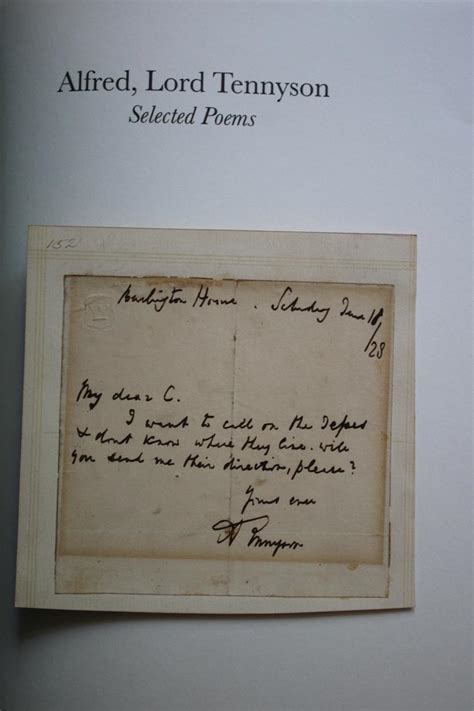 Alfred, Lord Tennyson
Selected Poems
152
Burlington House. Saturday June 18
/28
My dear C.
I want to call on the
& dont know where they live. will
you send me their direction, please?
Yours ever
A Tennyson